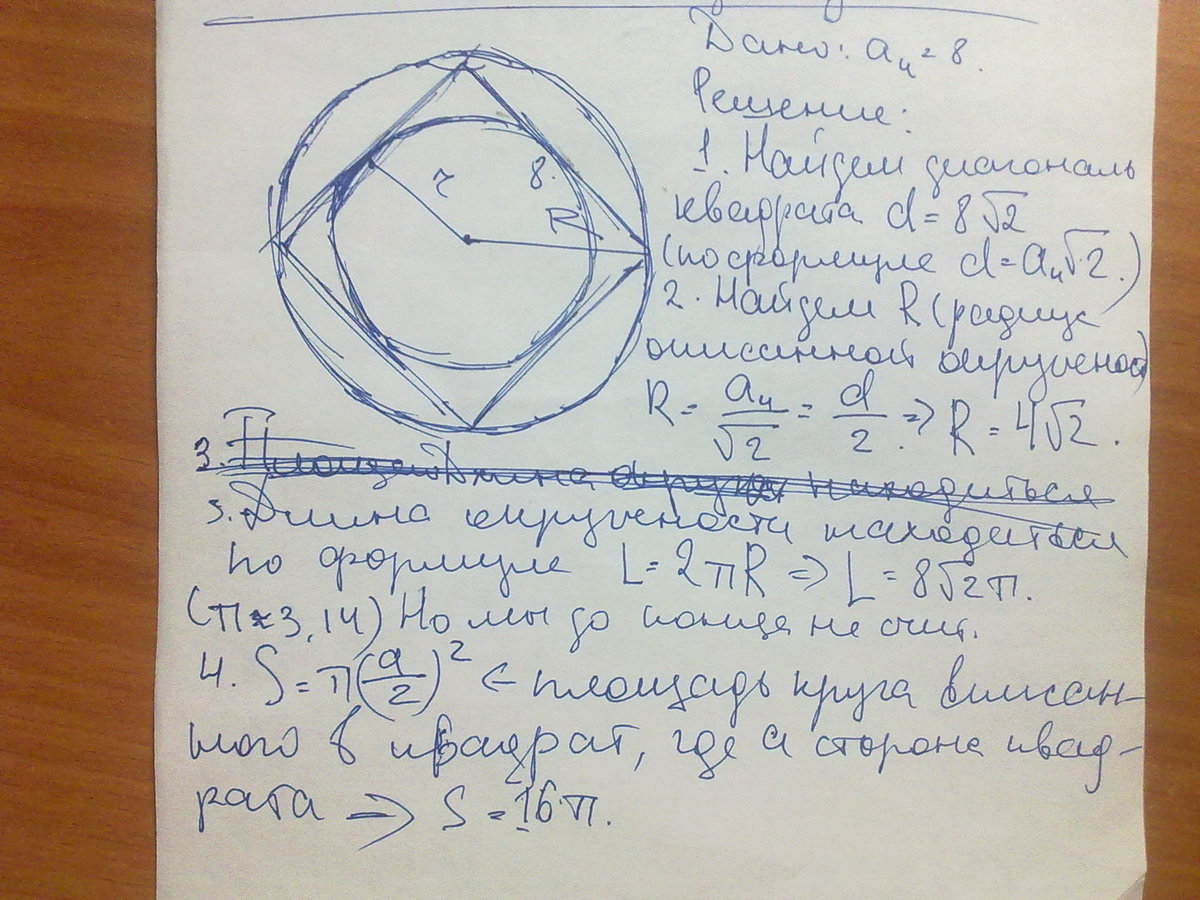 r
8.
R
Дано: a₄ = 8.
Решение:
1. Найдем диагональ
квадрата d = 8√2
(по формуле d = a₄√2.)
2. Найдем R (радиус
описанной окружност)
R = a₄/√2 = d/2 ⇒ R = 4√2.
3. Длина окружности находиться
по формуле L = 2πR ⇒ L = 8√2π.
(π ≈ 3,14) Но мы до конца не счит.
4. S = π(a/2)² ← площадь круга вписан-
ного в квадрат, где a сторона квад-
рата ⇒ S = 16π.